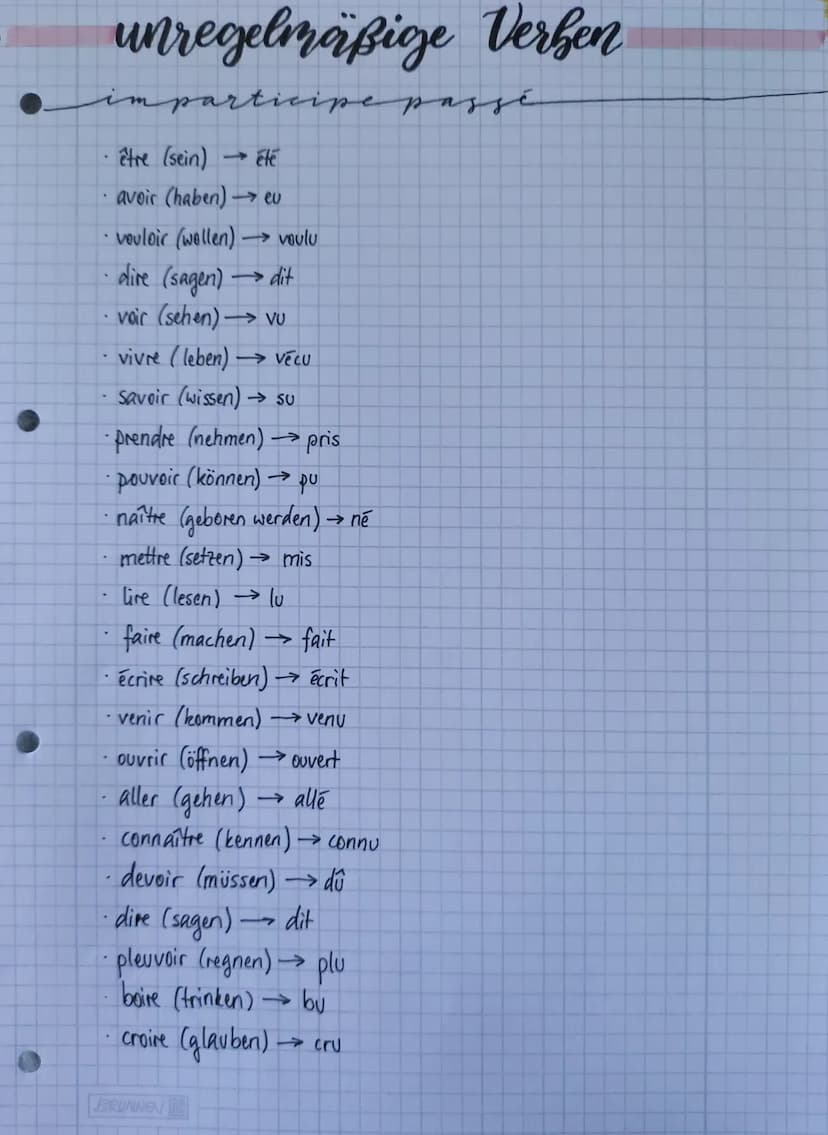 unregelmäßige Verben
im participe passé
· être (sein) → été
· avoir (haben) → eu
· vouloir (wollen) → voulu
· dire (sagen) → dit
· voir (sehen) → vu
· vivre (leben) → vécu
· savoir (wissen) → su
· prendre (nehmen) → pris
· pouvoir (können) → pu
· naître (geboren werden) → né
· mettre (setzen) → mis
· lire (lesen) → lu
· faire (machen) → fait
· écrire (schreiben) → écrit
· venir (kommen) → venu
· ouvrir (öffnen) → ouvert
· aller (gehen) → allé
· connaître (kennen) → connu
· devoir (müssen) → dû
· dire (sagen) → dit
· pleuvoir (regnen) → plu
· boire (trinken) → bu
· croire (glauben) → cru
BRUNNEN